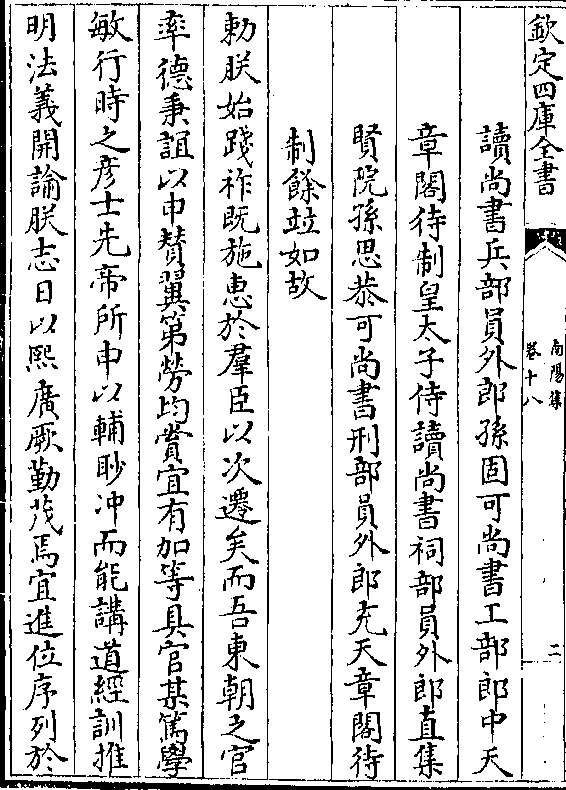 欽定四庫全書
南陽集
卷十八
二
讀尚書兵部員外郎孫固可尚書工部郎中天
章閣待制皇太子侍讀尚書祠部員外郎直集
賢院孫思恭可尚書刑部員外郎充天章閣待
制餘竝如故
勅朕始踐祚既施恵於羣臣以次遷矣而吾東朝之官
率德秉誼以申贊翼第勞均賞宜有加等具官某篤學
敏行時之彦士先帝所申以輔眇冲而能講道經訓推
明法義開論朕志日以熙廣厥勤茂焉宜進位序列於